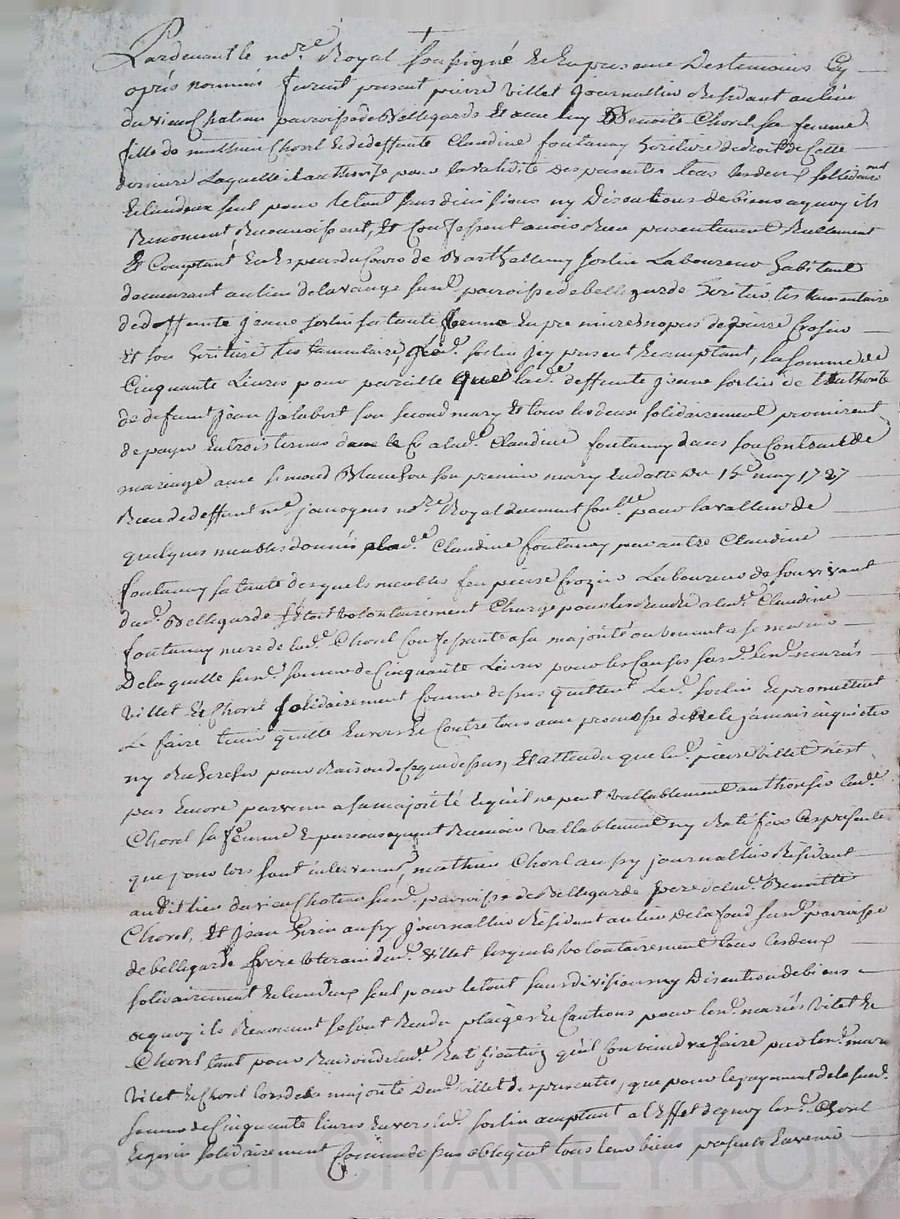 Pardevant le no.re Royal soussigné & En presance Destemoins Cy
aprés nommés furent present pierre Villet journallier Residant aulieu
du vieux Chateau paroisse de Bellegarde Et avec luy Benoite Chorel sa femme
fille de mathieu Chorel & de deffunte Claudine fontanay heritiere de droit de Cette
derniere Laquelle il authorise pour la validité des presentes tous les deux sollidairement
& lun deux seul pour le tout sans divisions ny Discutions de biens aquoy ils
Renoncent Reconnoissent, Et Confessent avoir Reçu presentement Reellement
Et Comptant En Especes du Cours de Barthellemy Jorlin Laboureur habitant
demeurant au lieu de la varage susd. paroisse de bellegarde heritier testamentaire
de deffunte jeanne jorlin sa tante femme En premiere nopces de pierre Crozier
Et son heritiere testamentaire, led. jorlin jcy present & acceptant, la somme de
Cinquante Livres pour pareille que lad.e deffunte jeanne jorlin de l'authorité
de defunt jean jalabert son second mary Et tous les deux solidairement promirent
de payer En trois termes a lad.e Claudine fontanay dans son Contract de
mariage avec simond Blanchon son premier mary En datte du 15.e may 1727
Recu de deffunt m.e jamogens no.re Royal deument Con.lé pour la valleur de
quelques meubles donnés a lad.e Claudine fontanay par autre Claudine
fontanay sa tante desquels meubles feu pierre Crozier Laboureur de son vivant
dud. Bellegarde s'Etoit volontairement Chargé pour les rendre a lad.e Claudine
fontanay mere de lad.e Chorel Confessante a sa majorité ou venant a se marier
De laquelle susd. somme de Cinquante Livres pour les Causes susd. lesd. mariés
Villet & Chorel solidairement Comme dessus quittent Led. jorlin & promettent
Le faire tenir quitte Envers & Contre tous avec promesse de ne le jamais inquietter
ny Rechercher pour Raison de ce que dessus, Et attendu que led. pierre Villet n'est
pas Encore parvenu a sa majorité & quil ne peut vallablement authoriser lad.e
Chorel sa femme & par consequent Recevoir vallablement ny Ratifier Ces presentes
que pour lors sont intervenus mathieu Chorel aussy journallier Residant
audit lieu du vieux Chateau susd. paroisse de Bellegarde pere de lad.e Benoitte
Chorel, Et jean Girin aussy journallier Residant au lieu de la font susd. paroisse
de bellegarde frere uterain dud. Villet lesquels volontairement tous les deux
solidairement & lun deux seul pour le tout sans division ny Discution de biens
aquoy ils Renoncent se sont Rendu plaiges & Cautions pour lesd. mariés Vilet &
Chorel tant pour Raison de lad.e Ratification quil Conviendra faire par lesd. mariés
Vilet & Chorel lors de la majorité dud. Villet des presentes, que pour le payement de la susd.
somme de Cinquante livres Envers led. jorlin acceptant a l'Effet de quoy lesd. Chorel
& girin solidairement Comme dessus obligent tous leur biens presents & avenir
Pascal CHAREYRON